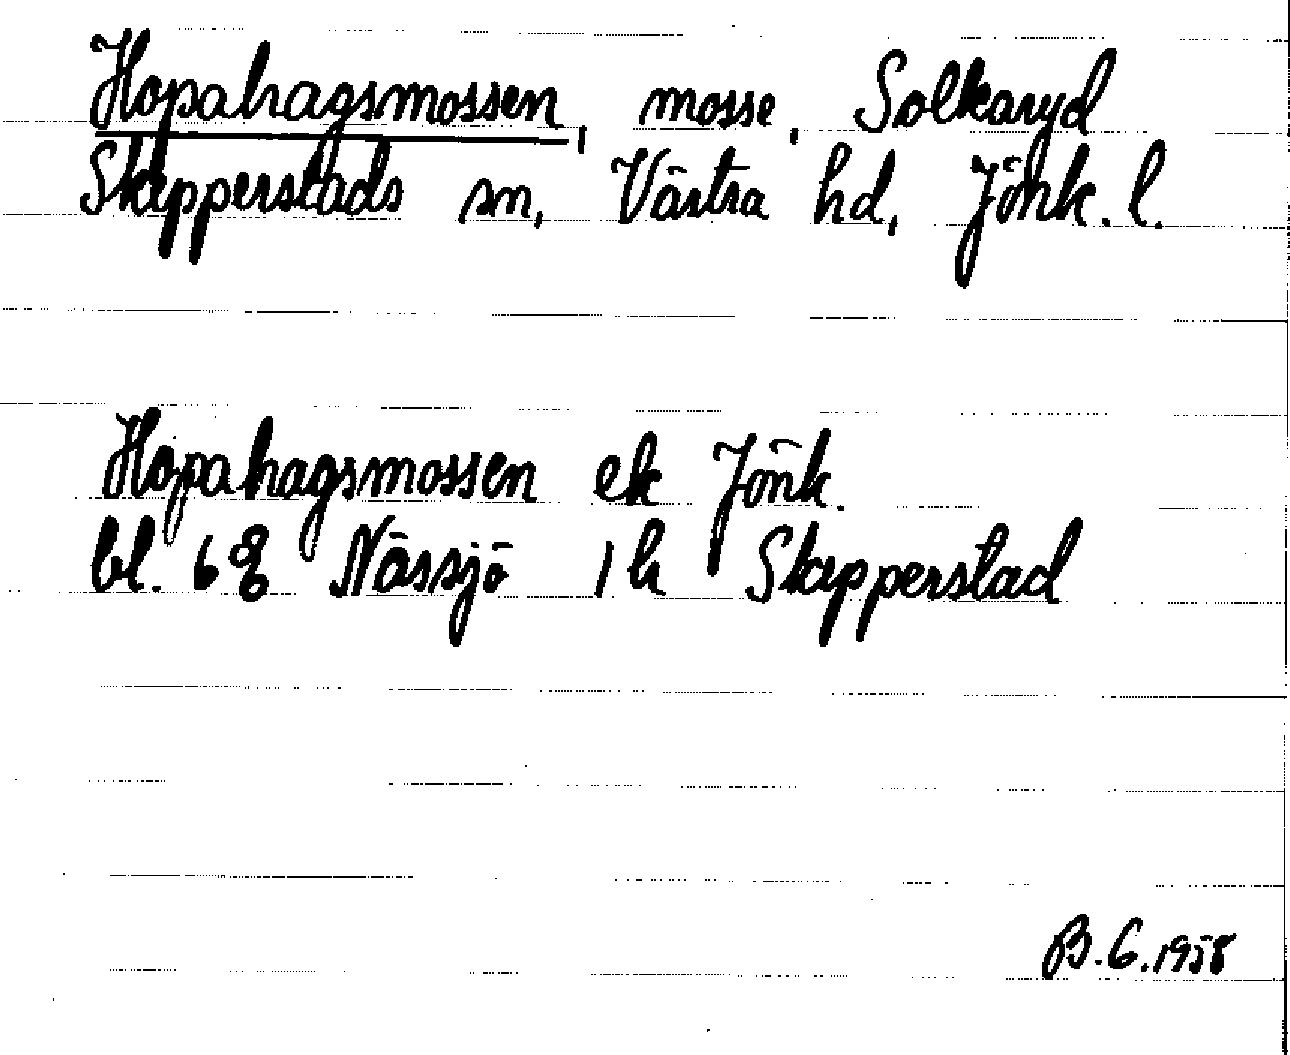 Hopahagsmossen, mosse, Solkaryd
Skepperstads sn, Västra hd, Jönk. l.
Hopahagsmossen ek Jönk.
bl. 68 Nässjö 1 h Skepperstad
B.G.1958